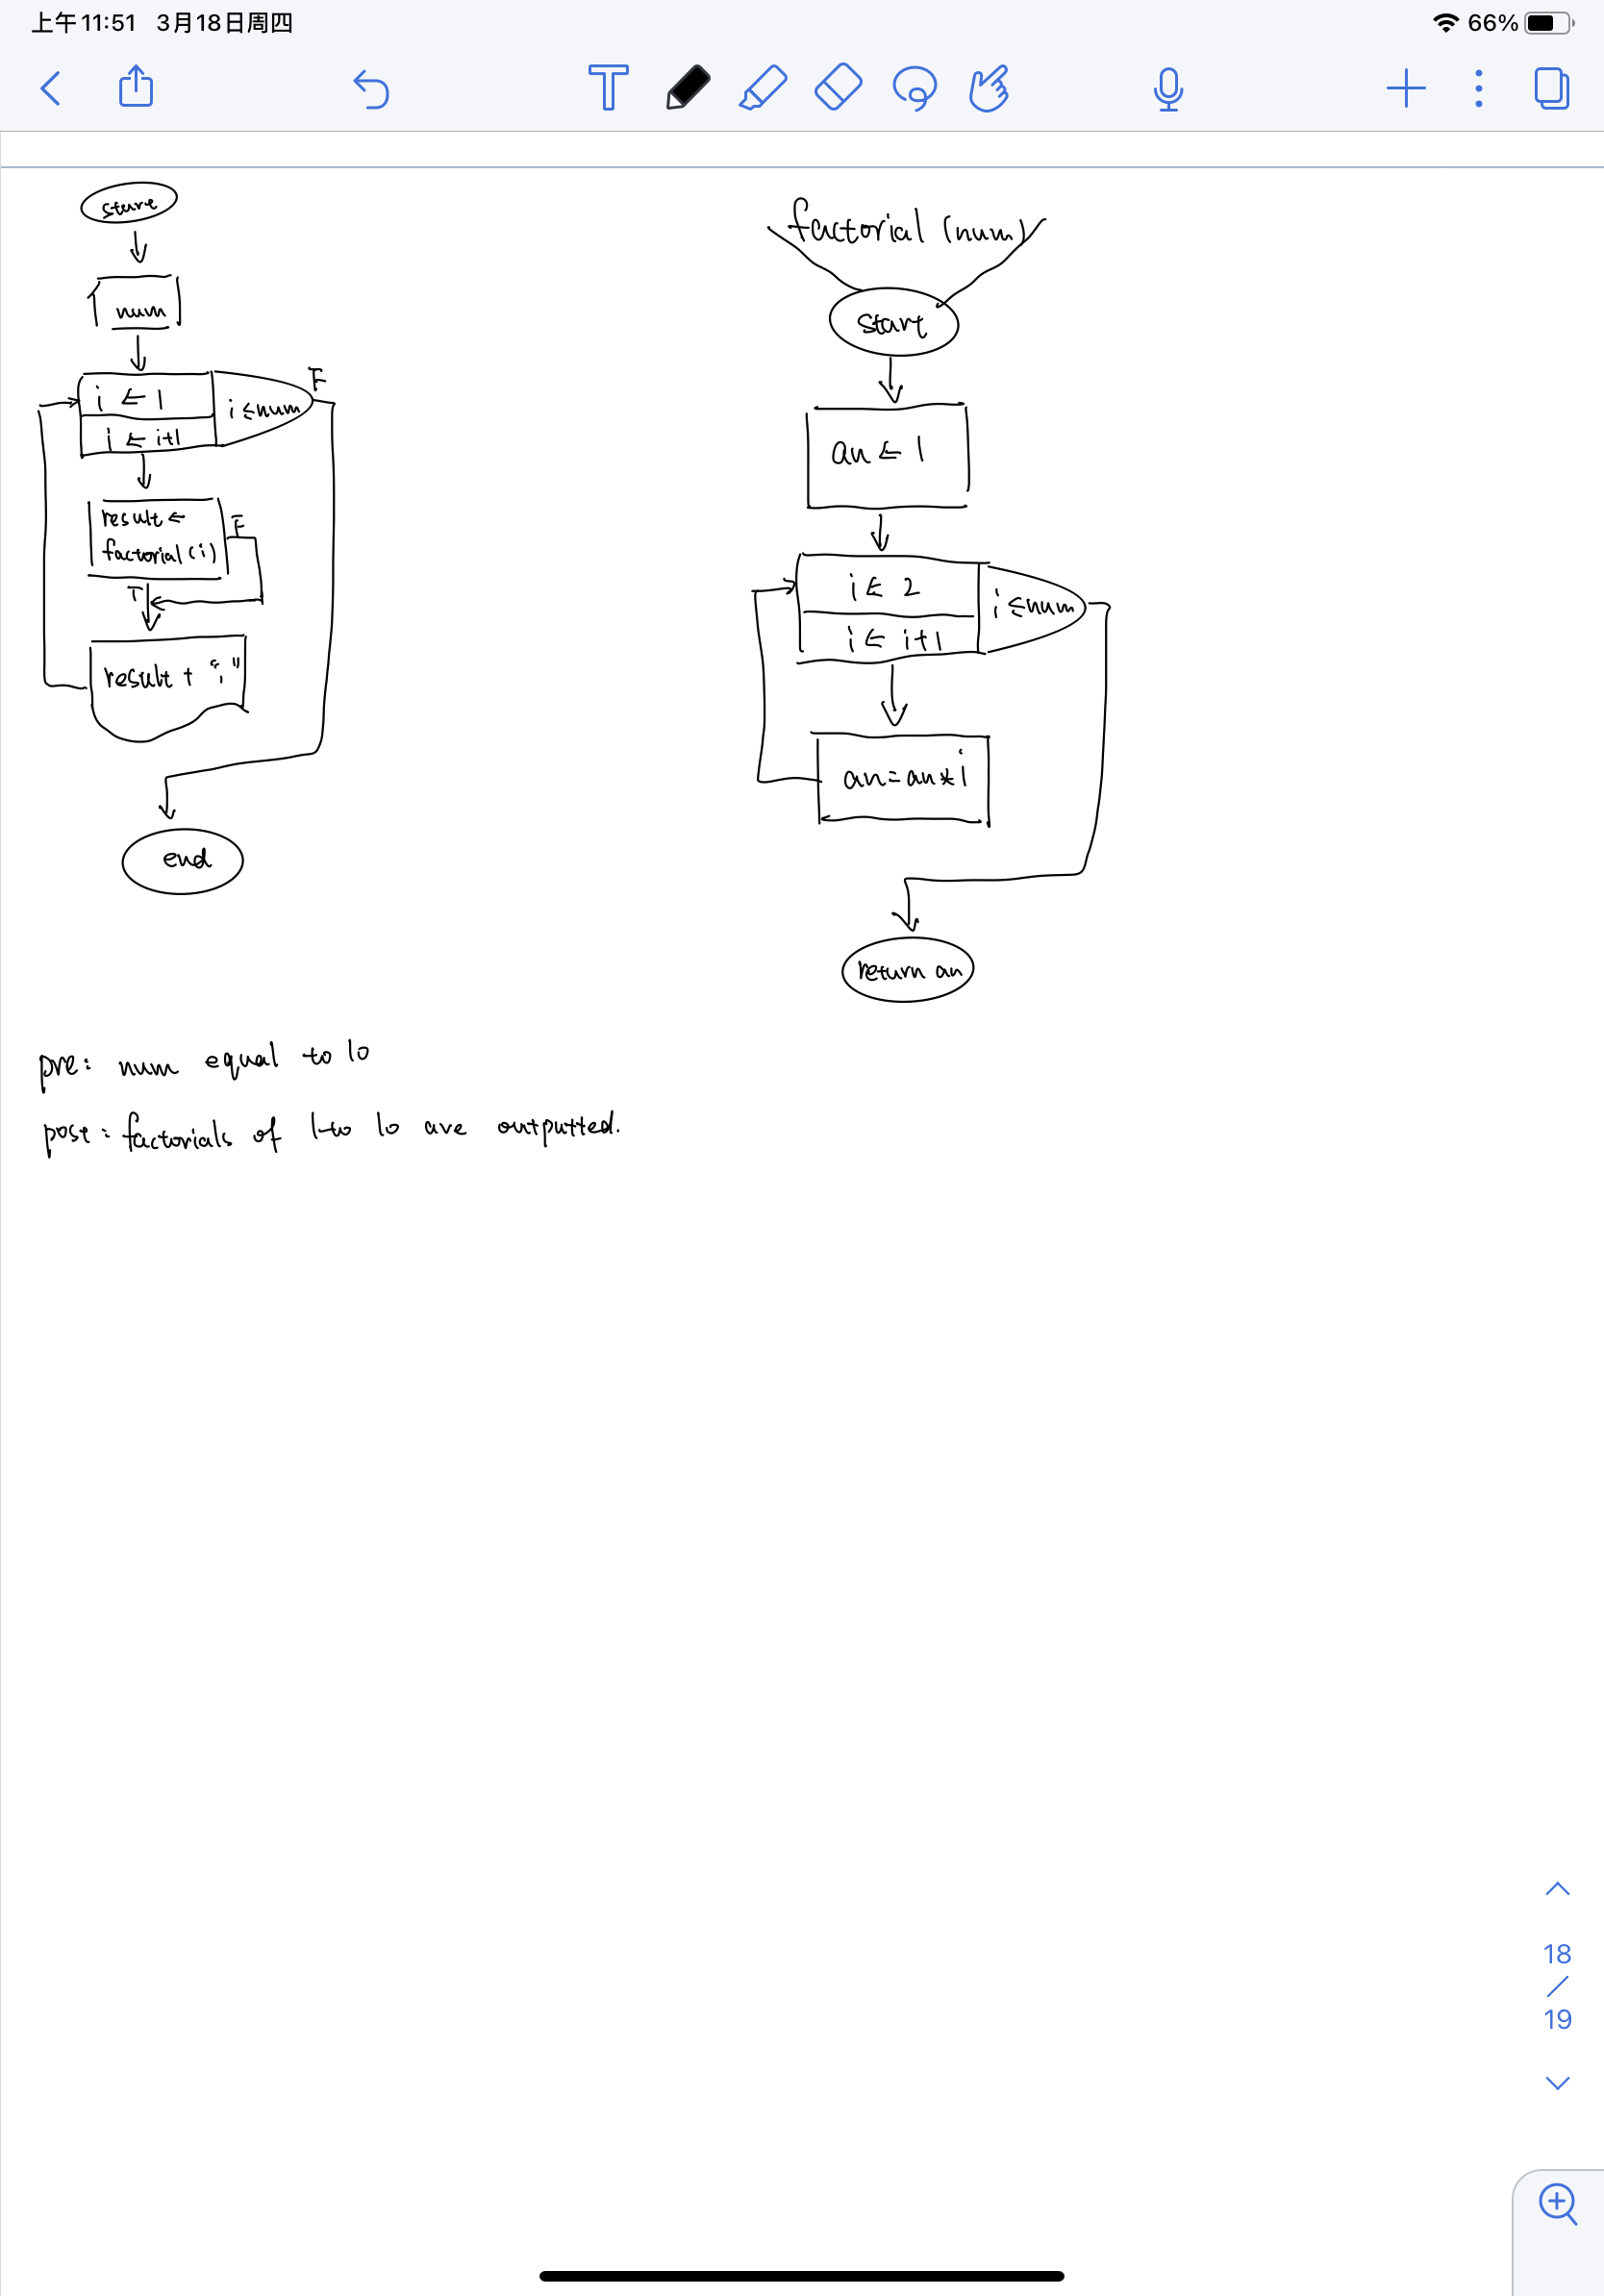 上午11:51 3月18日周四
66%
start
num
i ← 1
i ← i+1
i ≤ num
F
result ←
factorial(i)
F
T
result + ";"
end
factorial (num)
start
an ← 1
i ← 2
i ← i+1
i ≤ num
an = an * i
return an
pre: num equal to 10
post: factorials of 1 to 10 are outputted.
18
/
19